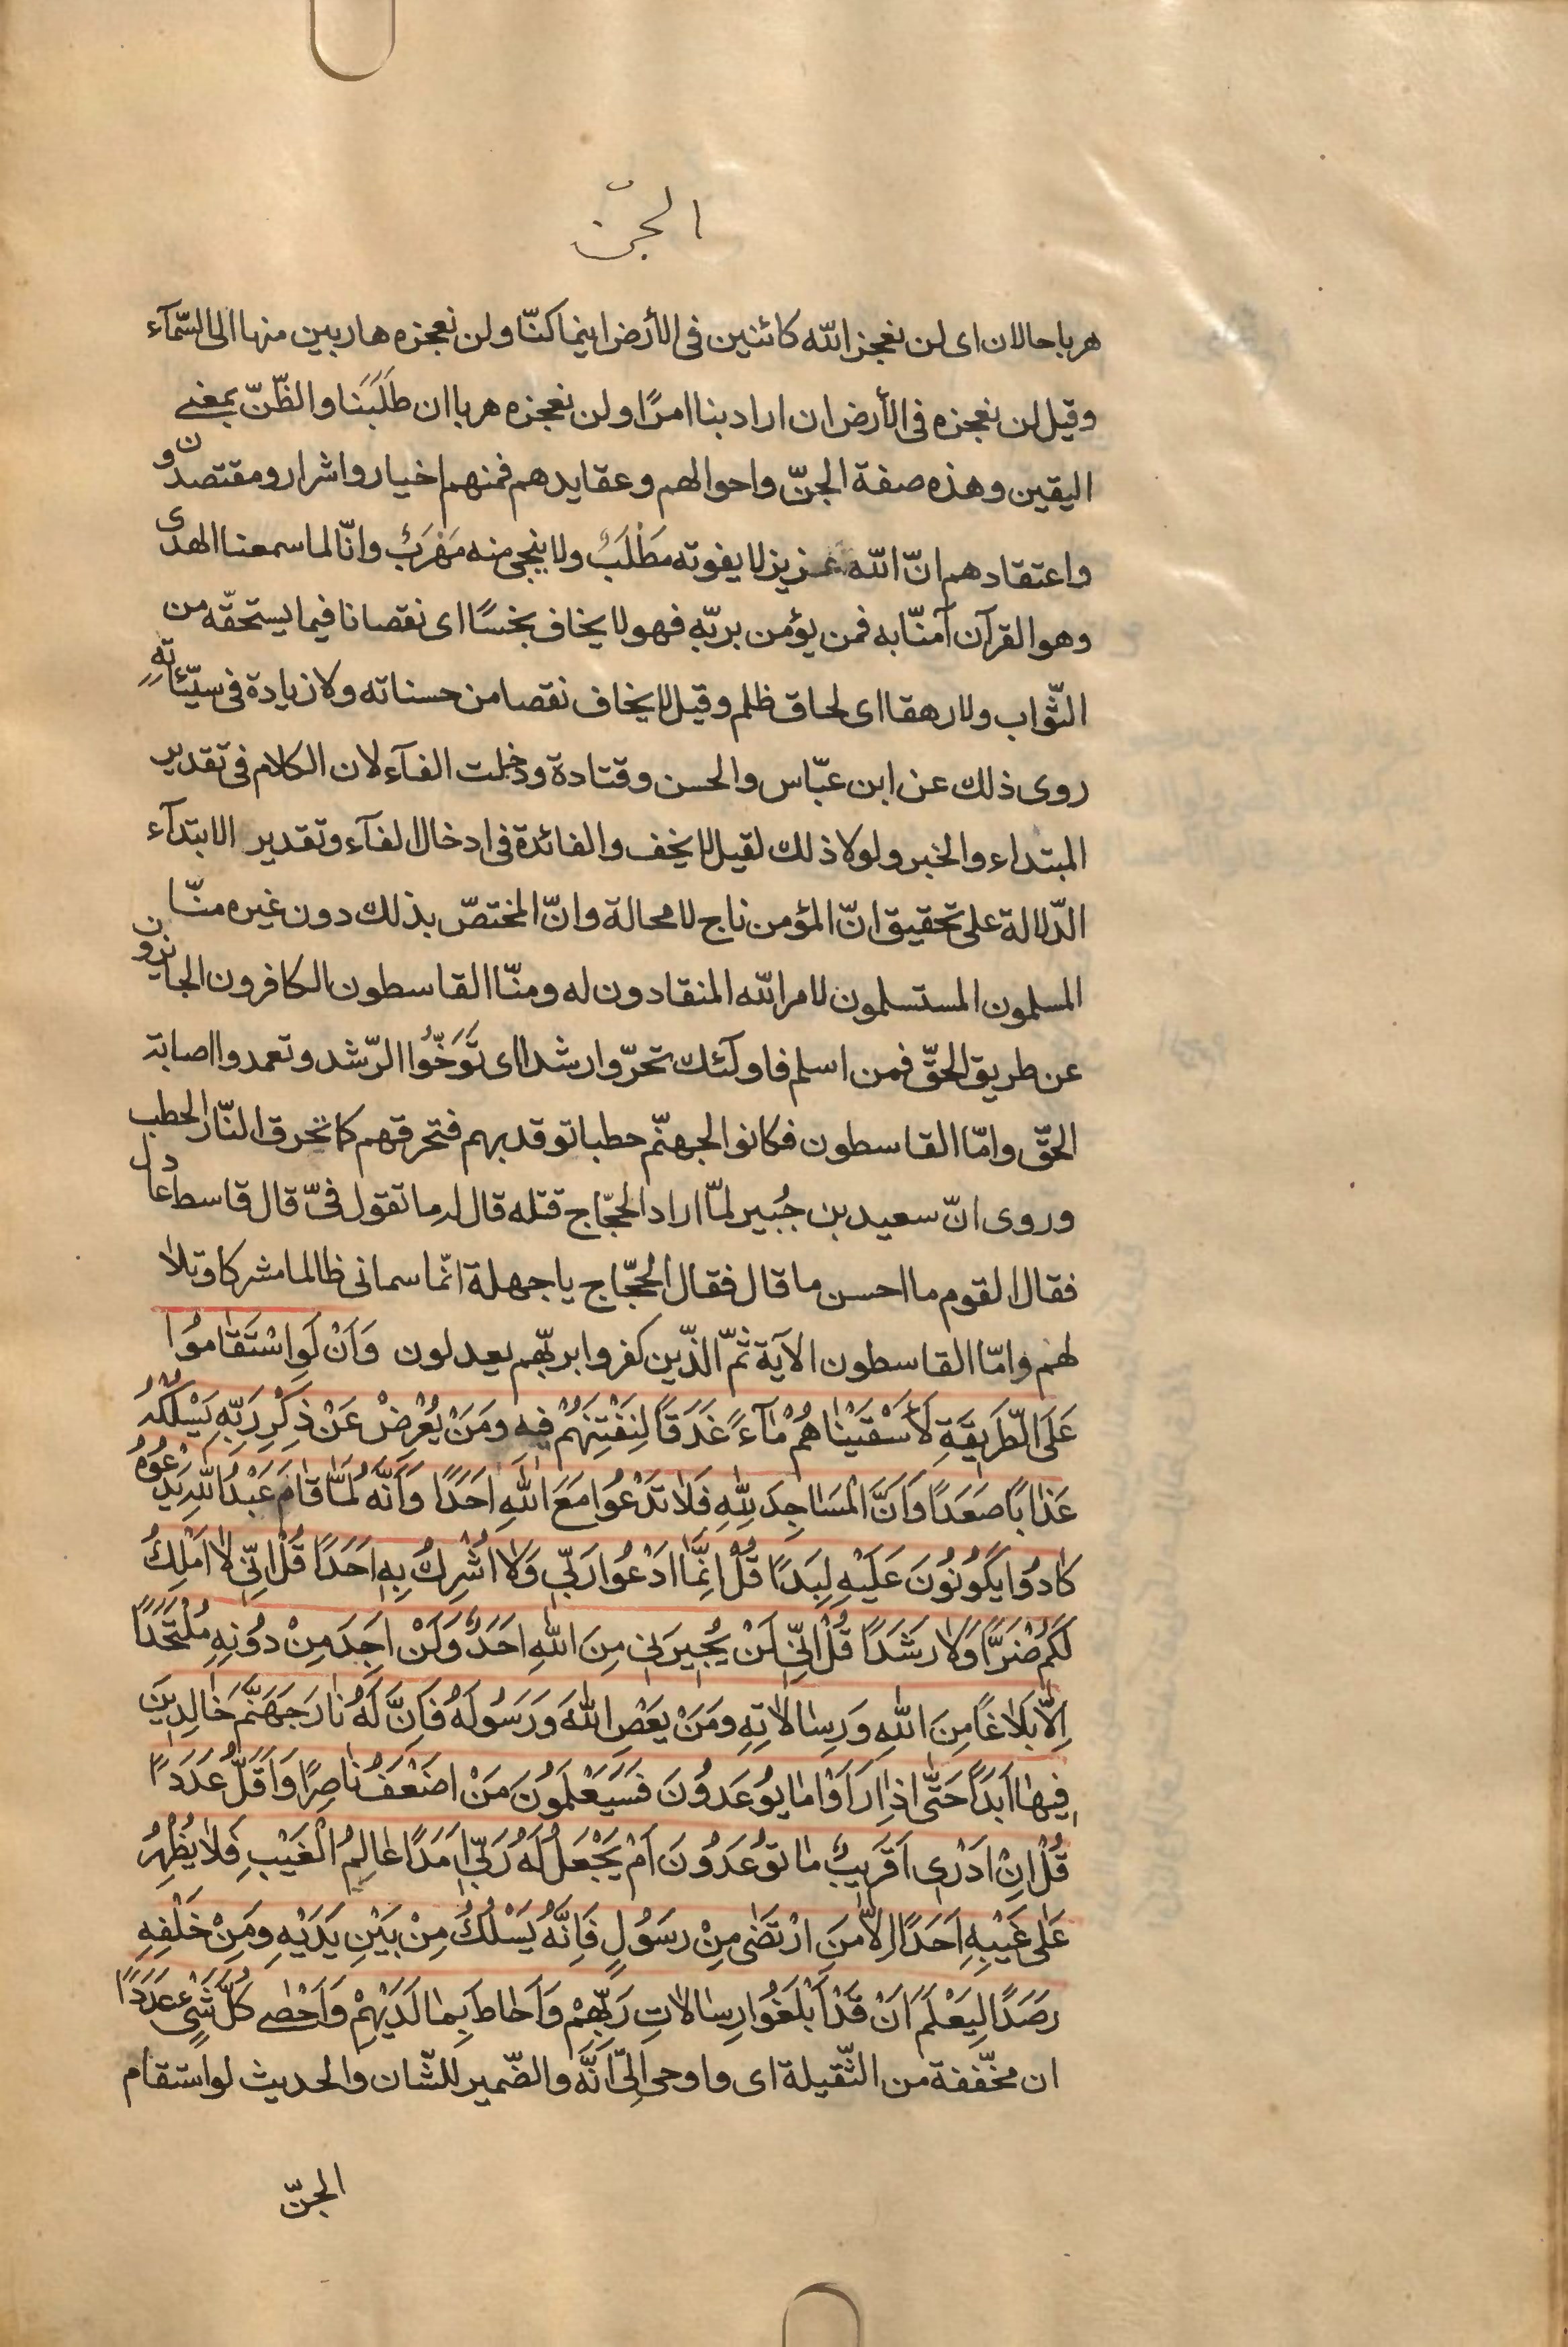 الجنّ
هربا حالان اى لن نعجز الله كائنين فى الأرض اينما كنّا ولن نعجزه هاربين منها الى السّمآء
وقيل لن نعجزه فى الأرض ان اراد بنا امرًا ولن نعجزه هربا ان طَلَبَنا والظّنّ بمعنى
اليقين وهذه صفة الجنّ واحوالهم وعقايدهم فمنهم اخيار واشرار ومقتصدون و
واعتقادهم انّ الله عزيز لا يفوته مَطْلَبٌ ولا ينجى منه مَهْرَبٌ وانّا لما سمعنا الهدى
وهو القرآن آمنّا به فمن يؤمن بربّه فهو لا يخاف بخسًا اى نقصانا فيما يستحقّه من
الثّواب ولا رهقا اى لحاق ظلم وقيل لا يخاف نقصا من حسناته ولا زيادة فى سيّئاته
روى ذلك عن ابن عبّاس والحسن وقتادة ودخلت الفآء لان الكلام فى تقدير
المبتداء والخبر ولولا ذلك لقيل لا يخف والفائدة فى ادخال الفآء وتقدير الابتدآء
الدّلالة على تحقيق انّ المؤمن ناج لا محالة وانّ المختصّ بذلك دون غيره منّا
المسلمون المستسلمون لامر الله المنقادون له ومنّا القاسطون الكافرون الجائرون
عن طريق الحقّ فمن اسلم فاولئك تحرّوا رشدا اى تَوَخَّوُا الرّشد وتعمدوا اصابة
الحقّ وامّا القاسطون فكانوا لجهنّم حطبا توقد بهم فتحرقهم كما تحرق النّار الحطب
وروى انّ سعيد بن جُبير لمّا اراد الحجّاج قتله قال له ما تقول فىّ قال قاسط عادل
فقال القوم ما احسن ما قال فقال الحجّاج يا جهلة انّما سمانى ظالما مشركا وتلا
لهم وامّا القاسطون الآية ثمّ الذّين كفروا بربّهم يعدلون وَاَنْ لَوِ اسْتَقٰامُوا
عَلَى الطَّرِيقَةِ لَأَسْقَيْنٰاهُمْ مٰآءً غَدَقًا لِنَفْتِنَهُمْ فِيهِ وَمَنْ يُعْرِضْ عَنْ ذِكْرِ رَبِّهِ يَسْلُكْهُ
عَذٰابًا صَعَدًا وَاَنَّ الْمَسٰاجِدَ لِلّٰهِ فَلٰا تَدْعُوا مَعَ اللّٰهِ اَحَدًا وَاَنَّهُ لَمّٰا قٰامَ عَبْدُ اللّٰهِ يَدْعُوهُ
كٰادُوا يَكُونُونَ عَلَيْهِ لِبَدًا قُلْ اِنَّمٰا اَدْعُوا رَبِّى وَلٰا اُشْرِكُ بِهِ اَحَدًا قُلْ اِنِّى لٰا اَمْلِكُ
لَكُمْ ضَرًّا وَلٰا رَشَدًا قُلْ اِنِّى لَنْ يُجِيرَنِى مِنَ اللّٰهِ اَحَدٌ وَلَنْ اَجِدَ مِنْ دُونِهِ مُلْتَحَدًا
اِلّٰا بَلٰاغًا مِنَ اللّٰهِ وَرِسٰالٰاتِهِ وَمَنْ يَعْصِ اللّٰهَ وَرَسُولَهُ فَاِنَّ لَهُ نٰارَ جَهَنَّمَ خٰالِدِينَ
فِيهٰا اَبَدًا حَتّٰى اِذٰا رَاَوْا مٰا يُوعَدُونَ فَسَيَعْلَمُونَ مَنْ اَضْعَفُ نٰاصِرًا وَاَقَلُّ عَدَدًا
قُلْ اِنْ اَدْرِى اَقَرِيبٌ مٰا تُوعَدُونَ اَمْ يَجْعَلُ لَهُ رَبِّى اَمَدًا عٰالِمُ الْغَيْبِ فَلٰا يُظْهِرُ
عَلٰى غَيْبِهِ اَحَدًا اِلّٰا مَنِ ارْتَضٰى مِنْ رَسُولٍ فَاِنَّهُ يَسْلُكُ مِنْ بَيْنِ يَدَيْهِ وَمِنْ خَلْفِهِ
رَصَدًا لِيَعْلَمَ اَنْ قَدْ اَبْلَغُوا رِسٰالٰاتِ رَبِّهِمْ وَاَحٰاطَ بِمٰا لَدَيْهِمْ وَاَحْصٰى كُلَّ شَىْءٍ عَدَدًا
ان مخّففة من الثّقيلة اى واوحى اِلىّ اَنَّهُ والضّمير للشّان والحديث لو استقام
الجنّ